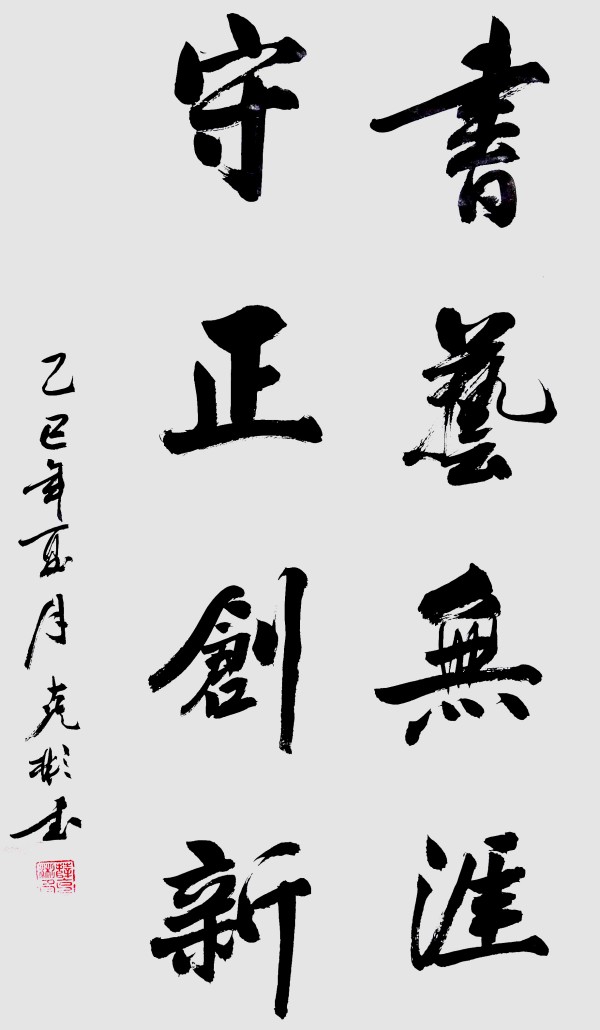 書藝無涯
守正創新
乙巳年夏月克彬書